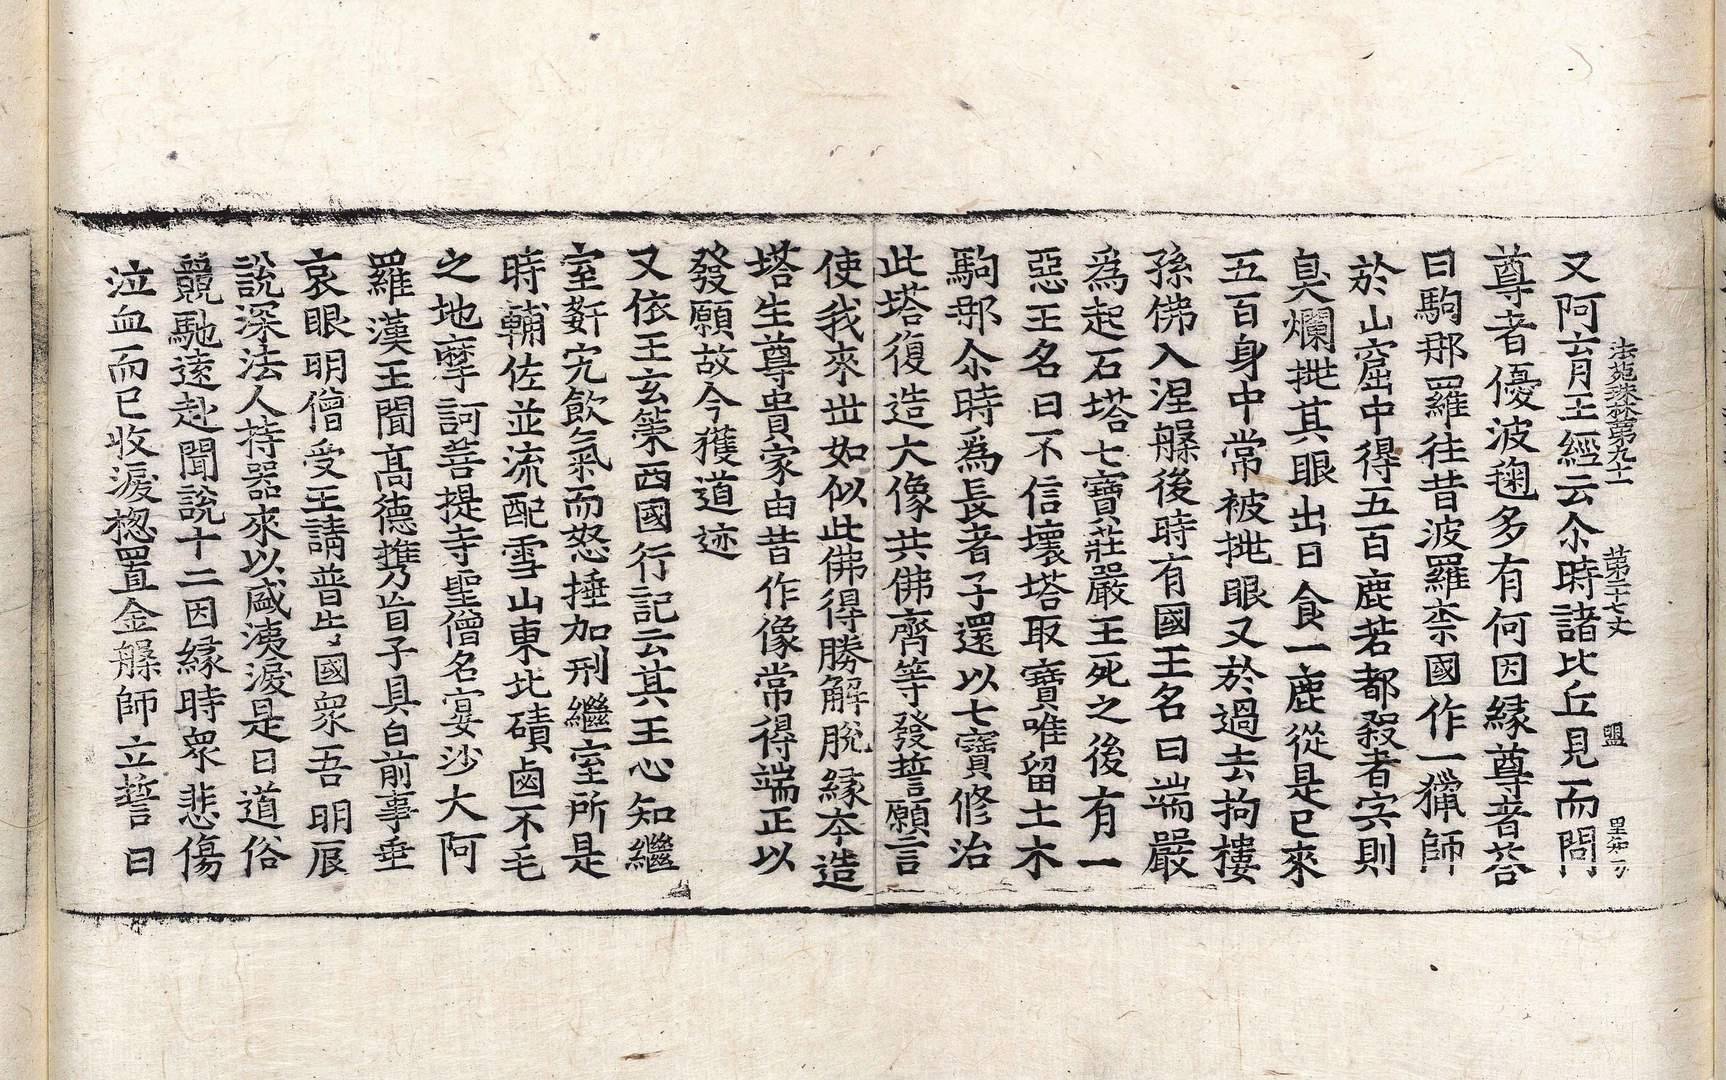 法苑珠林第九十一　第二十七丈　盟
又阿育王經云尒時諸比丘見而問
尊者優波毱多有何因緣尊者荅
曰駒那羅往昔波羅柰國作一獵師
於山窟中得五百鹿若都殺者㝐則
臭爛挑其眼出日食一鹿從是已來
五百身中常被挑眼又於過去拘樓
孫佛入涅槃後時有國王名曰端嚴
爲起石塔七寶莊嚴王死之後有一
惡王名曰不信壞塔取寶唯留土木
駒那尒時爲長者子還以七寶修治
此塔復造大像共佛齊等發誓願言
使我來世如似此佛得勝解脫緣本造
塔生尊貴家由昔作像常得端正以
發願故今獲道迹
又依王玄策西國行記云其王心知繼
室姧宄飲氣而怒捶加刑繼室所是
時輔佐並流配雪山東北磧鹵不毛
之地摩訶菩提寺聖僧名宴沙大阿
羅漢王聞高德攜乃盲子具白前事垂
哀眼明僧受王請普告國衆吾明辰
說深法人持器來以盛洟淚是日道俗
競馳遠赴聞說十二因緣時衆悲傷
泣血而已收淚揔置金槃師立誓曰